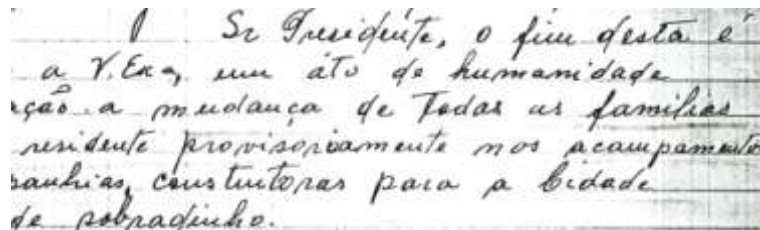 Sr Presidente, o fim desta é
a V. Exa, um áto de humanidade
ação a mudança de Todas as familias
residente provisoriamente nos acampamento
panhias, construtoras para a Cidade
de sobradinho.